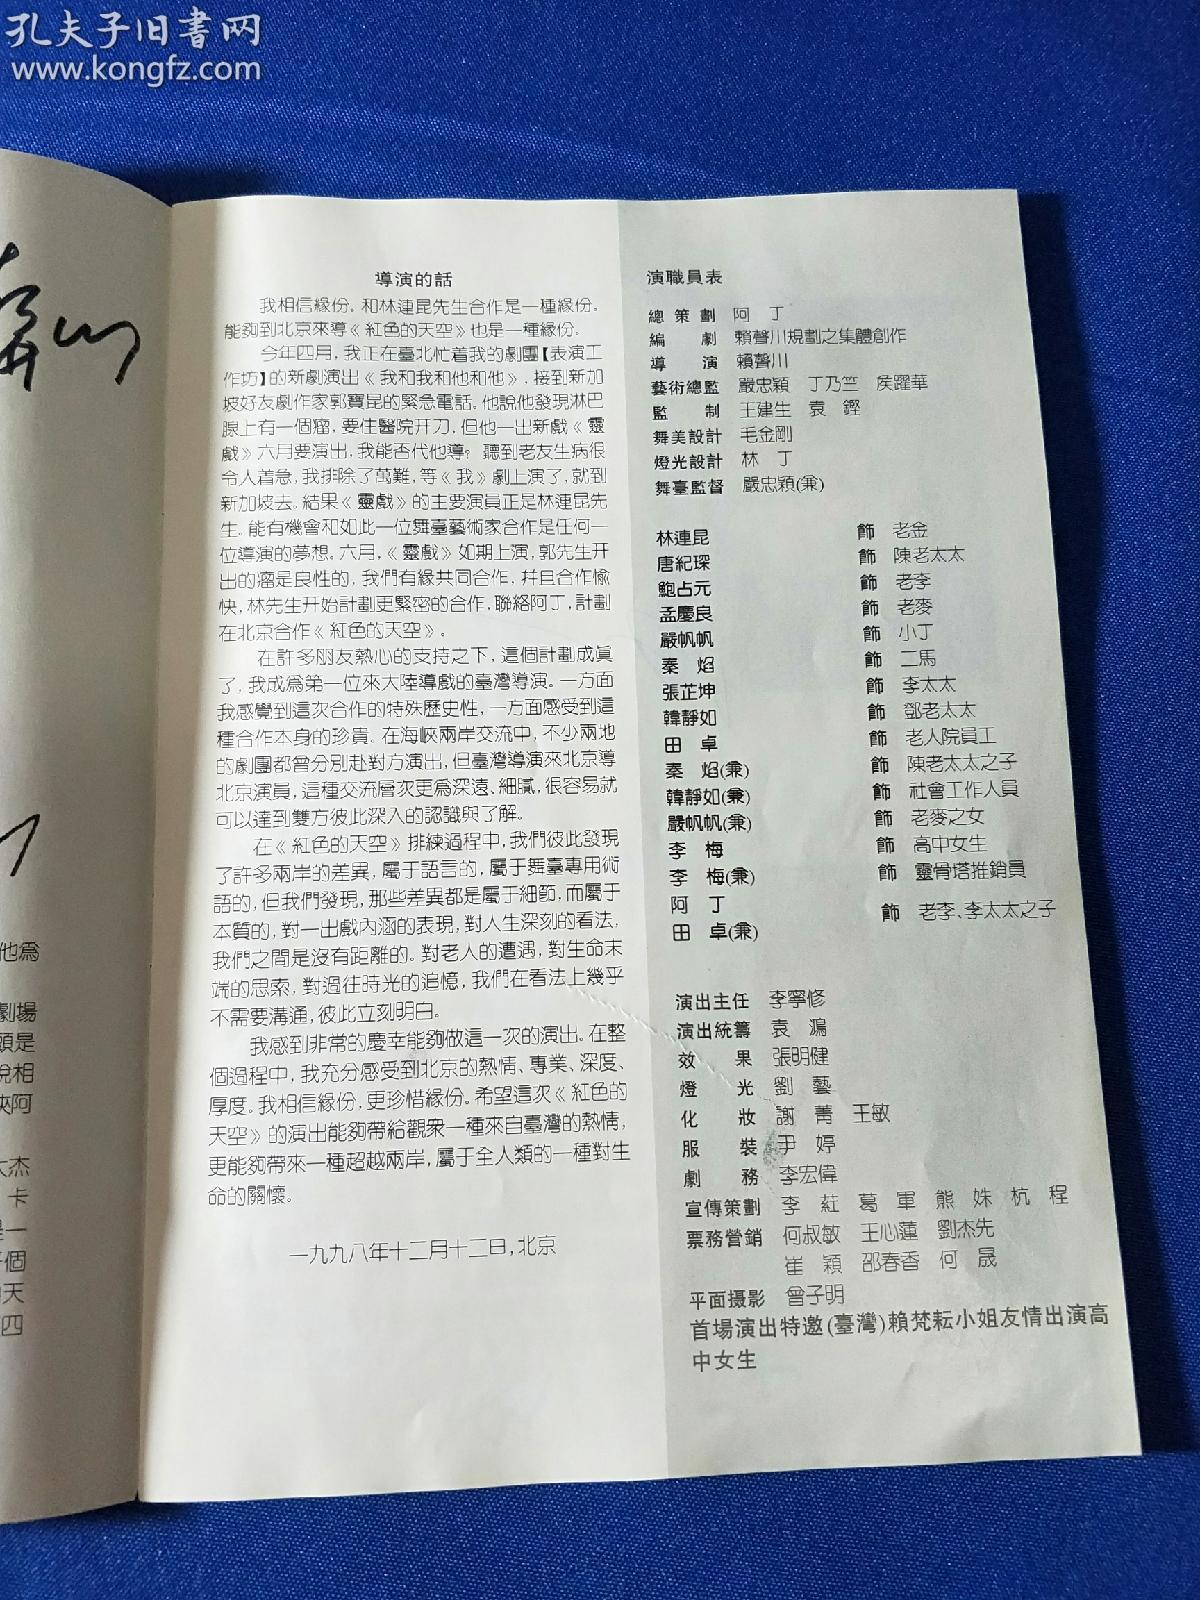 孔夫子旧書网
www.kongfz.com
他為
劇場
頭是
說相
大杰
卡
是一
個
天
四
導演的話
我相信緣份。和林連昆先生合作是一種緣份。
能夠到北京來導《紅色的天空》也是一種緣份。
今年四月,我正在臺北忙着我的劇團【表演工
作坊】的新劇演出《我和我和他和他》,接到新加
坡好友劇作家郭寶昆的緊急電話。他說他發現淋巴
腺上有一個瘤,要住醫院開刀,但他一出新戲《靈
戲》六月要演出,我能否代他導?聽到老友生病很
令人着急,我排除了萬難,等《我》劇上演了,就到
新加坡去。結果《靈戲》的主要演員正是林連昆先
生。能有機會和如此一位舞臺藝術家合作是任何一
位導演的夢想。六月,《靈戲》如期上演,郭先生開
出的瘤是良性的,我們有緣共同合作,幷且合作愉
快,林先生開始計劃更緊密的合作,聯絡阿丁,計劃
在北京合作《紅色的天空》。
在許多朋友熱心的支持之下,這個計劃成真
了,我成爲第一位來大陸導戲的臺灣導演。一方面
我感覺到這次合作的特殊歷史性,一方面感受到這
種合作本身的珍貴。在海峽兩岸交流中,不少兩地
的劇團都曾分別赴對方演出,但臺灣導演來北京導
北京演員,這種交流層次更爲深遠、細膩,很容易就
可以達到雙方彼此深入的認識與了解。
在《紅色的天空》排練過程中,我們彼此發現
了許多兩岸的差異,屬于語言的,屬于舞臺專用術
語的,但我們發現,那些差異都是屬于細節,而屬于
本質的,對一出戲內涵的表現,對人生深刻的看法,
我們之間是沒有距離的。對老人的遭遇,對生命末
端的思索,對過往時光的追憶,我們在看法上幾乎
不需要溝通,彼此立刻明白。
我感到非常的慶幸能夠做這一次的演出。在整
個過程中,我充分感受到北京的熱情、專業、深度、
厚度。我相信緣份,更珍惜緣份。希望這次《紅色的
天空》的演出能夠帶給觀衆一種來自臺灣的熱情,
更能夠帶來一種超越兩岸,屬于全人類的一種對生
命的關懷。
一九九八年十二月十二日,北京
演職員表
總策劃 阿丁
編劇 賴聲川規劃之集體創作
導演 賴聲川
藝術總監 嚴忠穎 丁乃竺 侯躍華
監制 王建生 袁鏗
舞美設計 毛金剛
燈光設計 林丁
舞臺監督 嚴忠穎(兼)
林連昆 飾 老金
唐紀琛 飾 陳老太太
鮑占元 飾 老李
孟慶良 飾 老麥
嚴帆帆 飾 小丁
秦焰 飾 二馬
張芷坤 飾 李太太
韓靜如 飾 鄧老太太
田卓 飾 老人院員工
秦焰(兼) 飾 陳老太太之子
韓靜如(兼) 飾 社會工作人員
嚴帆帆(兼) 飾 老麥之女
李梅 飾 高中女生
李梅(兼) 飾 靈骨塔推銷員
阿丁
田卓(兼) 飾 老李、李太太之子
演出主任 李寧修
演出統籌 袁鴻
效果 張明健
燈光 劉藝
化妝 謝菁 王敏
服裝 尹婷
劇務 李宏偉
宣傳策劃 李紅 葛軍 熊姝 杭程
票務營銷 何叔敏 王心蓮 劉杰先
崔穎 邵春香 何晟
平面摄影 曾子明
首場演出特邀(臺灣)賴梵耘小姐友情出演高
中女生